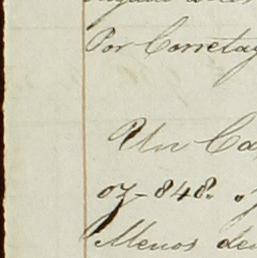 Por Corretag
Un Ca
oz - 848.
Menos de